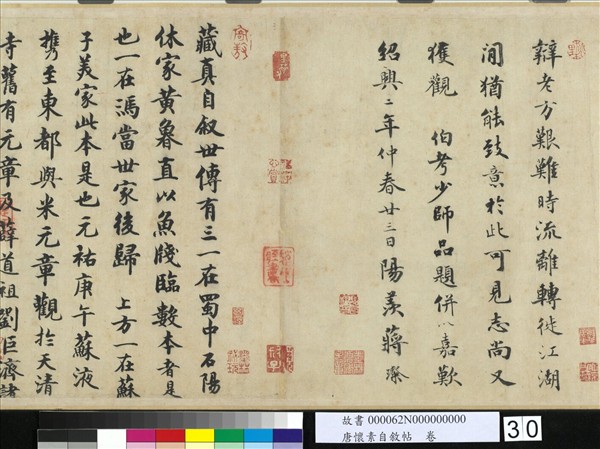 辯老方艱難時流離轉徙江湖
間猶能致意於此可見志尚又
獲觀 伯考少師品題併以嘉歎
紹興二年仲春廿三日陽羨蔣璨
藏真自叙世傳有三一在蜀中石陽
休家黃魯直以魚牋臨數本者是
也一在馮當世家後歸 上方一在蘇
子美家此本是也元祐庚午蘇液
攜至東都與米元章觀於天清
寺舊有元章及薛道祖劉巨濟諸
故書 000062N000000000
唐懷素自敘帖 卷
30